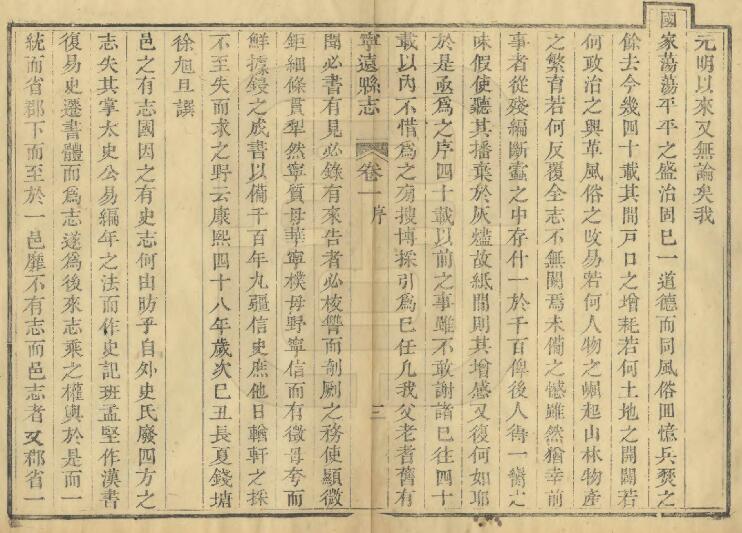 元明以來又無論矣我
國家蕩蕩平平之盛治固已一道德而同風俗囬憶兵燹之
餘去今幾四十載其間戸口之增耗若何土地之開闢若
何政治之興革風俗之攺易若何人物之崛起山林物產
之繁育若何反覆全志不無闕焉未備之憾雖然猶幸前
事者從殘編斷蠹之中存什一於千百俾後人得一臠之
味假使聽其播棄於灰燼故紙間則其增感又復何如耶
於是亟爲之序四十載以前之事雖不敢謝諸已徃四十
載以內不惜爲之旁搜博採引爲已任凢我父老耆舊有
寧遠縣志 卷一 序 三
聞必書有見必錄有來告者必核讐而剞劂之務使顯微
鉅細條貫犁然寧質毋華寧樸毋野寧信而有徵毋夸而
鮮據鋟之成書以備千百年九疆信史庶他日輶軒之採
不至失而求之野云康熙四十八年歲次已丑長夏錢塘
徐旭旦譔
邑之有志國因之有史志何由昉乎自外史氏廢四方之
志失其掌太史公易編年之法而作史記班孟堅作漢書
復易史遷書體而爲志遂爲後來志乘之權輿於是而一
統而省郡下而至於一邑靡不有志而邑志者又郡省一